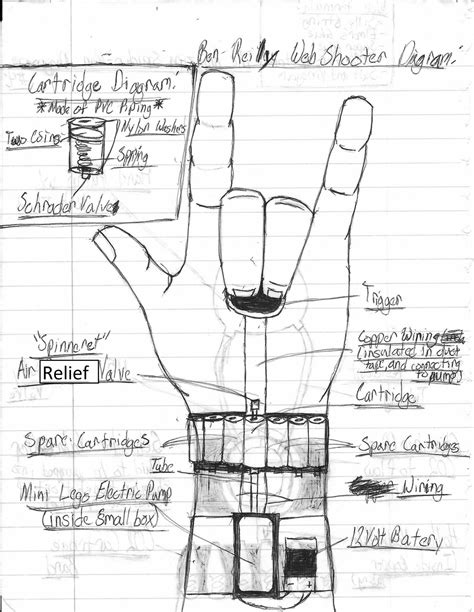 Ben-Reilly Web Shooter Diagram:
Cartridge Diagram:
*Made of PVC Piping*
Two Osings
Nylon Washers
Spping
Schrader Valve
Trigger
Copper Wining
(insulated in duct
tape, and connecting
to pump)
"Spinneret"
Air Relief Valve
Cartridge
Spare Cartridges
Spare Cartridges
Tube
Wining
Mini Lego Electric Pump
(inside small box)
12 Volt Batery
- +